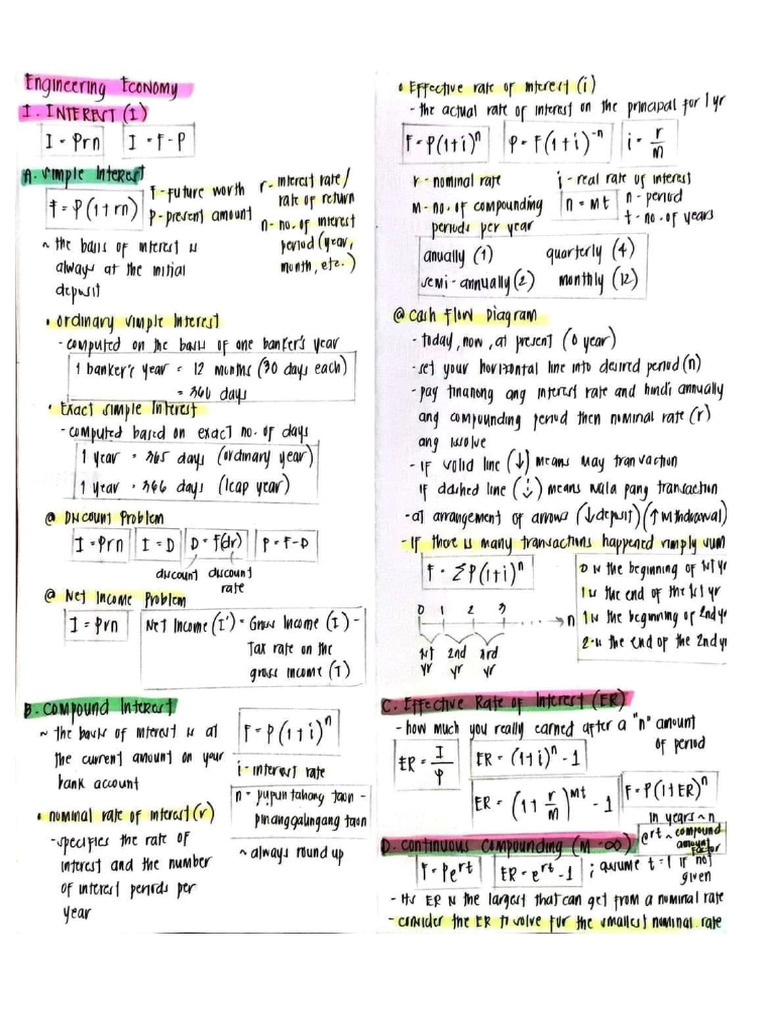 Engineering Economy
I. INTEREST (I)
I = Prn
I = F - P
A. Simple Interest
F = P(1+rn)
F - Future worth
P - present amount
r - interest rate/
rate of return
n - no. of interest
period (year,
month, etc.)
~ the basis of interest is
always at the initial
deposit
• Ordinary Simple Interest
- computed on the basis of one banker's year
1 banker's year = 12 months (30 days each)
= 360 days
• Exact Simple Interest
- computed based on exact no. of days
1 year = 365 days (ordinary year)
1 year = 366 days (leap year)
@ Discount Problem
I = Prn
I = D
D = F(dr)
P = F - D
discount
discount
rate
@ Net Income Problem
I = Prn
Net Income (I') = Gross Income (I) -
Tax rate on the
gross income (T)
B. Compound Interest
~ the basis of interest is at
the current amount on your
bank account
F = P(1+i)ⁿ
i - interest rate
n = pupuntahang taon -
pinanggalingang taon
~ always round up
• nominal rate of interest (r)
- specifies the rate of
interest and the number
of interest periods per
year
• Effective rate of interest (i)
- the actual rate of interest on the principal for 1 yr
F = P(1+i)ⁿ
P = F(1+i)⁻ⁿ
i = r/m
r - nominal rate
i - real rate of interest
m - no. of compounding
periods per year
n = mt
n - period
t - no. of years
anually (1)
quarterly (4)
semi-annually (2)
monthly (12)
@ Cash Flow Diagram
- today, now, at present (0 year)
- set your horizontal line into desired period (n)
- pag tinanong ang interest rate and hindi annually
ang compounding period then nominal rate (r)
ang isolve
- If solid line (↓) means may transaction
If dashed line (⇣) means wala pang transaction
- at arrangement of arrows (↓deposit)(↑withdrawal)
- If there is many transactions happened simply sum
F = ΣP(1+i)ⁿ
0 is the beginning of 1st yr
1 is the end of the 1st yr
1 is the beginning of 2nd yr
2 is the end of the 2nd yr
0 1 2 3 ... → n
1st 2nd 3rd
yr yr yr
C. Effective Rate of Interest (ER)
- how much you really earned after a "n" amount
of period
ER = I/P
ER = (1+i)ⁿ - 1
ER = (1 + r/m)ᵐᵗ - 1
F = P(1+ER)ⁿ
in years ~ n
D. Continuous Compounding (M = ∞)
eʳᵗ ~ compound
amount
factor
F = Peʳᵗ
ER = eʳᵗ - 1
; assume t = 1 if not
given
- Its ER is the largest that can get from a nominal rate
- consider the ER to solve for the smallest nominal rate